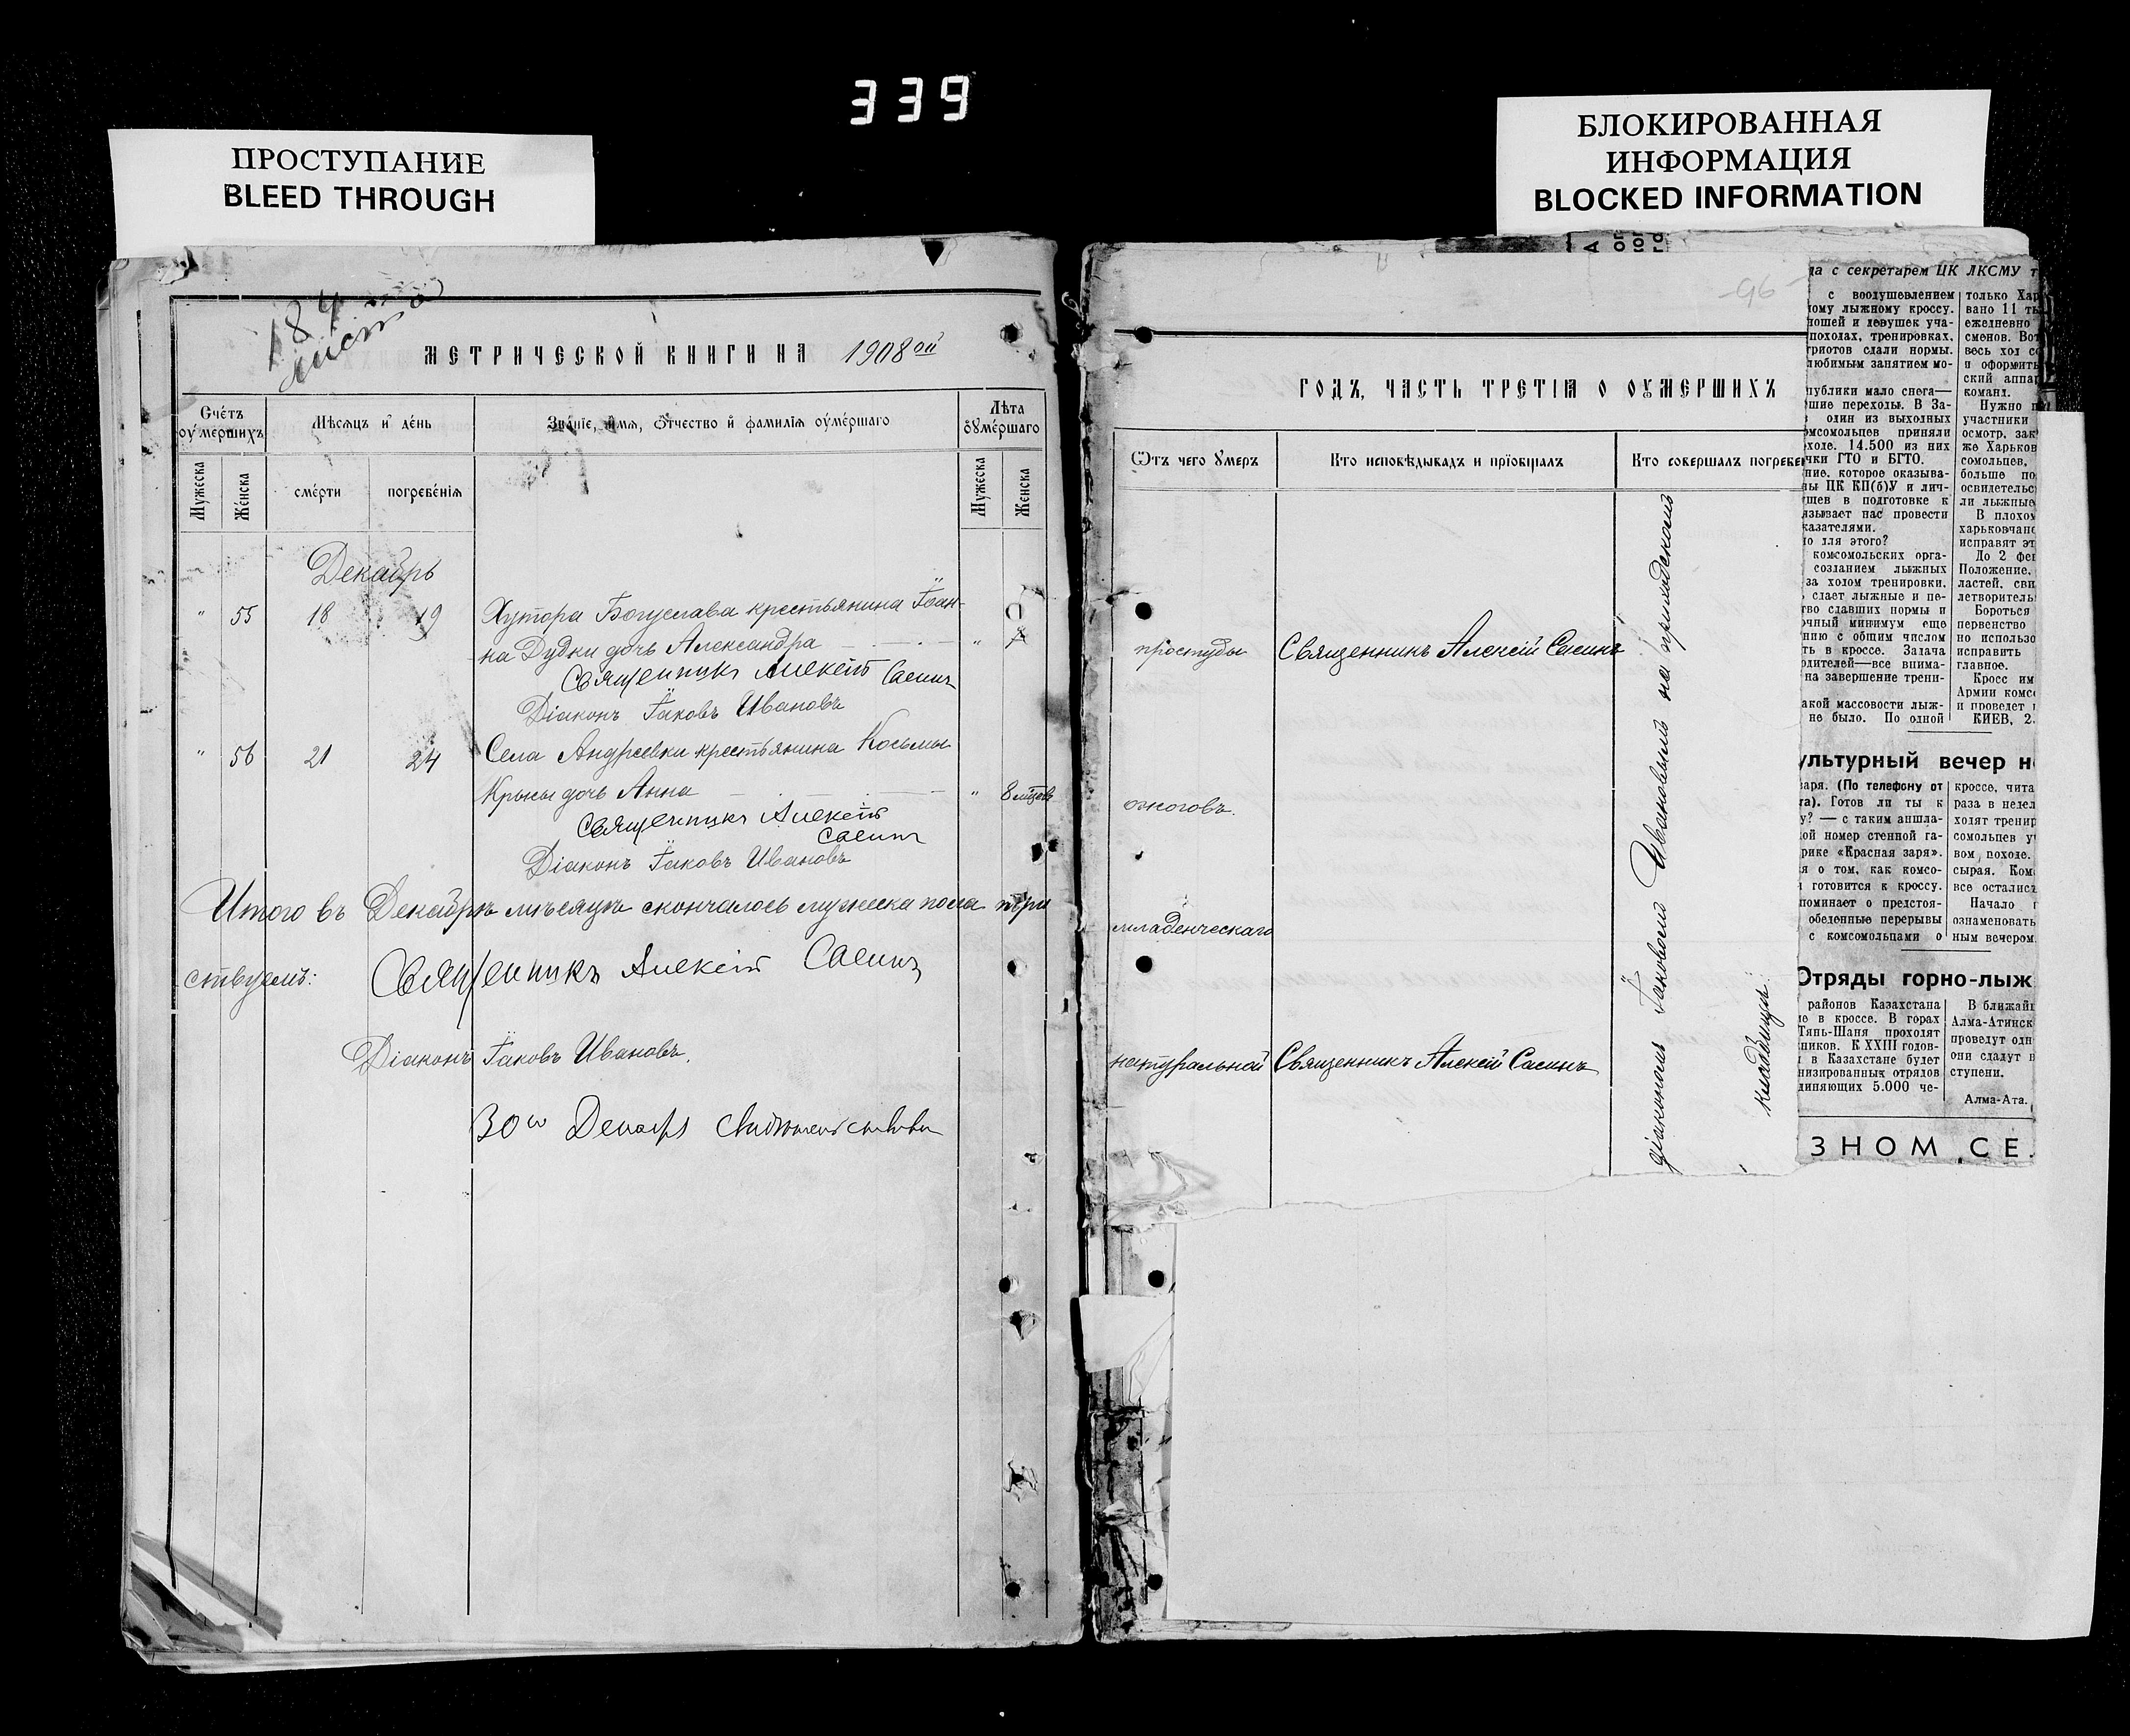 339
ПРОСТУПАНИЕ
BLEED THROUGH
БЛОКИРОВАННАЯ
ИНФОРМАЦИЯ
BLOCKED INFORMATION
184
МЕТРИЧЕСКОЙ КНИГИ НА 1908ой
Счётъ оумершихъ
Мѣсяцъ и день
Званіе, имя, Отчество и фамилія оумершаго
Лѣта оумершаго
Мужеска
Женска
смерти
погребенія
Мужеска
Женска
Декабрь
" 55 18 19 Хутора Богуслава крестьянина Іоан-
на Дудки дочь Александра "
Священникъ Алексій Сасинъ
Діаконъ Іаковъ Ивановъ
" 56 21 24 Села Андреевки крестьянина Косьмы
Крысы дочь Анна " 8 мѣсяцевъ
Священникъ Алексій
Сасинъ
Діаконъ Іаковъ Ивановъ
Итого въ Декабрѣ мѣсяцѣ скончалось мужеска пола три
Священникъ Алексій Сасинъ
Діаконъ Іаковъ Ивановъ.
-96-
ГОДЪ, ЧАСТЬ ТРЕТІЯ О ОУМЕРШИХЪ
Отъ чего умеръ
Кто исповѣдывалъ и пріобщалъ
Кто совершалъ погребе
простуды Священникъ Алексій Сасинъ
ожоговъ.
младенческаго
натуральной Священникъ Алексій Сасинъ
діакономъ Іаковомъ Ивановымъ на приходскомъ
кладбищѣ.
да с секретарем ЦК ЛКСМУ т
с воодушевлением
ому лыжному кроссу.
ношей и девушек уча-
походах, тренировках,
риотов сдали нормы.
любимым занятием мо-
публики мало снега—
шие переходы. В За-
один из выходных
омсомольцев приняли
ходе. 14.500 из них
чки ГТО и БГТО.
ние, которое оказыва-
ны ЦК КП(б)У и лич-
щев в подготовке к
язывает нас провести
казателями.
о для этого?
комсомольских орга-
созданием лыжных
за ходом тренировки.
сдает лыжные и пе-
тво сдавших нормы и
очный минимум еще
нию с общим числом
ть в кроссе. Задача
одителей—все внима-
на завершение трени-
акой массовости лыж-
не было. По одной
только Хар
вано 11 ты
ежедневно
сменов. Вот
весь ход со
и оформить
ский аппар
команд.
Нужно п
участники
осмотр, зак
же Харьков
сомольцев,
больше по
освидетельс
ли лыжные
В плохом
харьковчане
исправят эт
До 2 фев
Положение,
ластей, сви
летворитель
Бороться
первенство
но использо
исправить
главное.
Кросс им
Армии комс
и проведет
КИЕВ, 2.
ультурный вечер н
аря. (По телефону от
та). Готов ли ты к
у? — с таким аншла-
ой номер стенной га-
рике «Красная заря».
я о том, как комсо-
готовится к кроссу.
поминает о предстоя-
обеденные перерывы
с комсомольцами о
кроссе, чита
раза в недел
ходят тренир
сомольцев у
вом походе.
сырая. Ком
все осталис
Начало
ознаменовать
ным вечером
Отряды горно-лыж
районов Казахстана
е в кроссе. В горах
Тянь-Шаня проходят
ников. К XXIII годов-
в Казахстане будет
низированных отрядов
диняющих 5.000 че-
В ближай
Алма-Атинск
проведут одн
они сдадут н
ступени.
Алма-Ата.
ЗНОМ СЕ